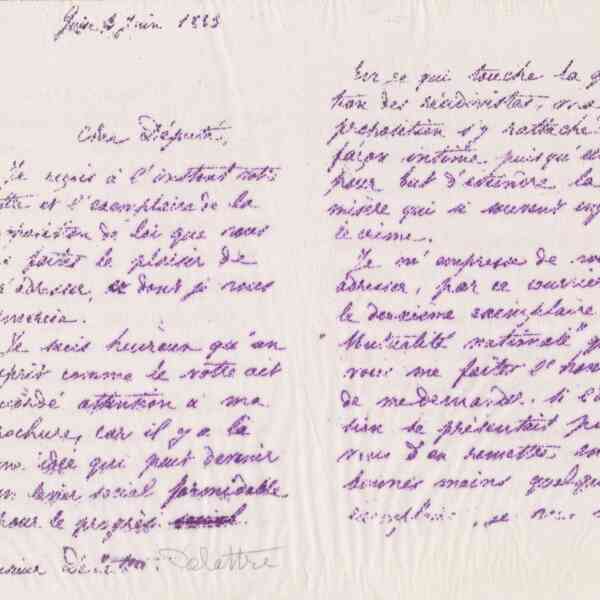 Guise 3 Juin 1883
Cher Député,
Je reçois à l'instant votre
lettre et l'exemplaire de la
proposition de loi que vous
faites le plaisir de
m'adresser, et dont je vous
remercie.
Je suis heureux qu'un
esprit comme le votre ait
accordé attention à ma
brochure, car il y a là
une idée qui peut devenir
un levier social formidable
pour le progrès social.
Delattre
En ce qui touche la q
tion des récidivistes, ma
proposition s'y rattache
façon intime, puisqu'el
pour but d'éteindre la
misère qui si souvent en
le crime.
Je m'empresse de vo
adresser, par ce courrier
le deuxième exemplaire
Mutualité nationale" q
vous me faites l'hon
de me demander. Si l'o
sion se présentait po
vous d'en remettre en
bonnes mains quelqu
exemplaires, je vous